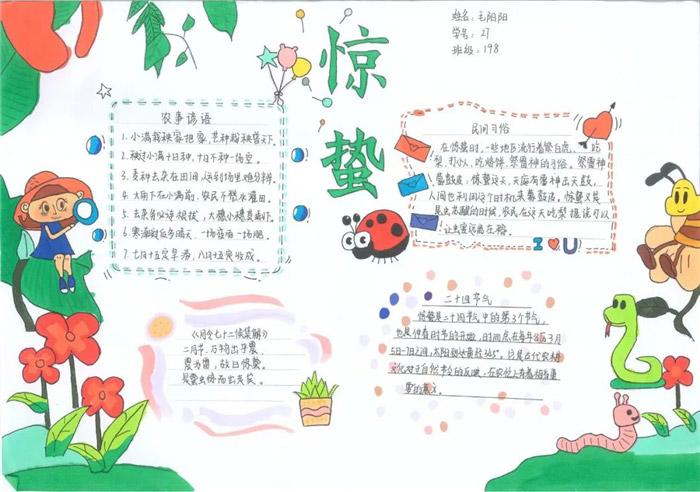 姓名:毛阳阳
学号:27
班级:198
惊
蛰
农事谚语
1.小满栽秧家把家,芒种栽秧普天下。
2.秧过小满十日种,十日不种一场空。
3.麦种去杂在田间,运到场里难分辨。
4.大雨下在小满前,农民不愁水灌田。
5.去杂务必连根拔,大穗小穗莫丢下。
6.寒潮时后多晴天,一场夜雨一场肥。
7.七月十五定旱涝,八月十五定收成。
民间习俗
在惊蛰时,一些地区流行着祭白虎、吃
梨、打小人、吃烙饼、祭雷神的习俗。祭雷神
蒙鼓皮:惊蛰这天,天庭有雷神击天鼓,
人间也利用这个时机来蒙鼓皮。惊蛰又是
昆虫苏醒的时候,农民在这天吃梨提虞可以
让虫害远离庄稼。
I U
《月令七十二候集解》
二月节,万物出乎震,
震为雷,故曰惊蛰。
是蛰虫惊而出走矣。
二十四节气
惊蛰是二十四节气中的第3个节气,
也是仲春时节的开始,时间点在每年公历3月
5日-7日之间,太阳到达黄经345°。它是古代农耕
文化对于自然节令的反映,在农忙上有着相当重
要的意义。